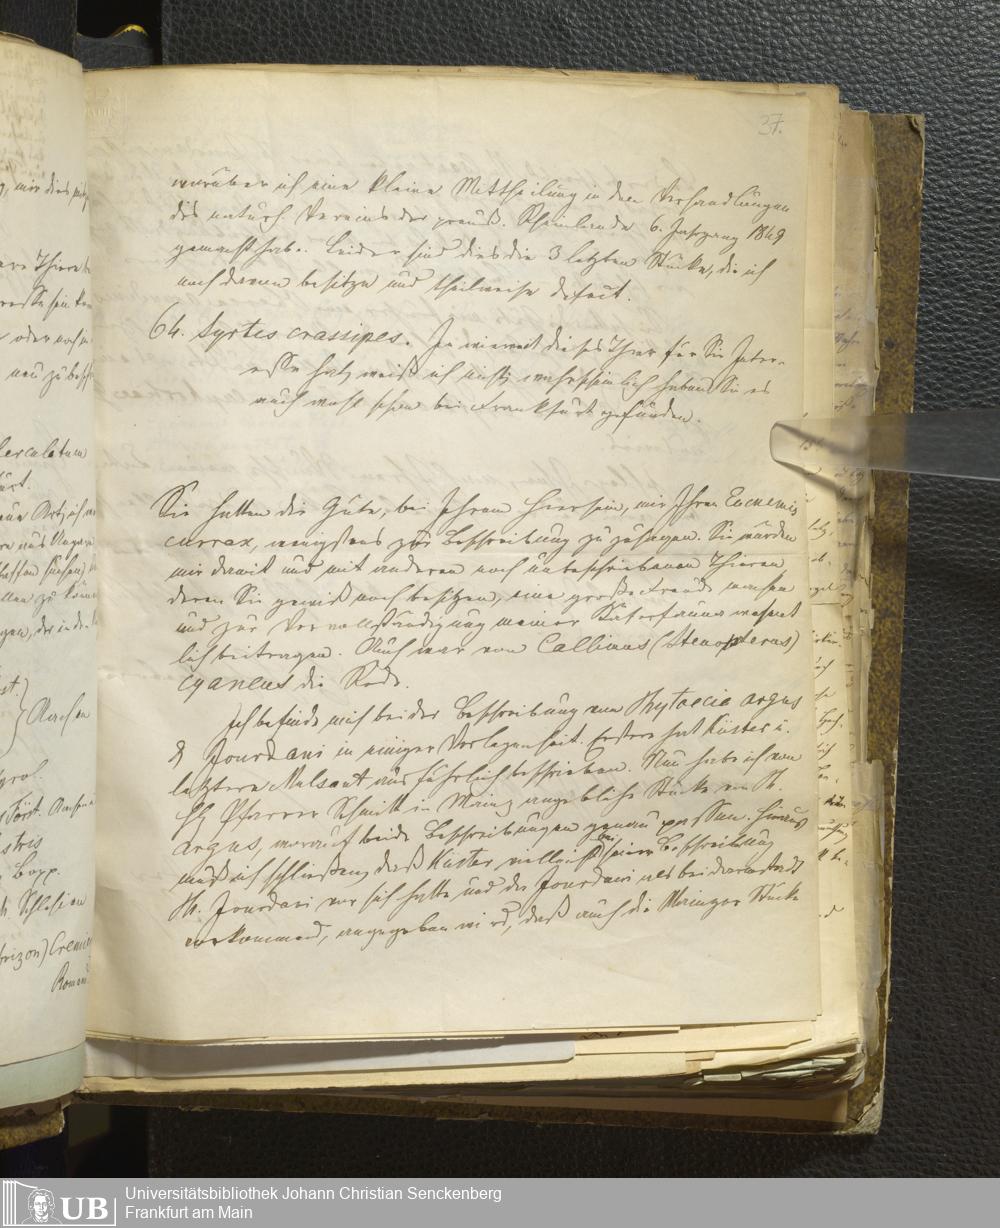 37.
worüber ich eine kleine Mittheilung in den Verhandlungen
des naturh. Vereins der preuß. Rheinlande 6. Jahrgang 1849
gemacht habe. Leider sind dies die 3 letzten Stücke, die ich
noch davon besitze und theilweise defect.
64. Syrtis crassipes. In wieweit dieses Thier für Sie Inter-
esse hat, weiß ich nicht, wahrscheinlich haben Sie es
auch wohl schon bei Frankfurt gefunden.
Sie hatten die Güte, bei Ihrem Hiersein, mir Ihren Eucnemis
currax, wenigstens zur Beschreibung zu zusagen. Sie würden
mir damit und mit anderen noch unbeschriebenen Thieren,
deren Sie gewiß noch besitzen, eine große Freude machen
und zur Vervollständigung meiner Käferfauna wesent
lich beitragen. Auch war von Callimus (Stenopterus)
cyaneus die Rede.
Ich befinde mich bei der Beschreibung von Phytoecia argus
& Jourdani in einiger Verlegenheit. Erstere hat Küster u.
letztere Mulsant ausführlich beschrieben. Nun habe ich von
H. Pfarrer Schmitt in Mainz angebliche Stücke von Ph.
argus, worauf beide Beschreibungen genau passen. Hieraus
muß ich schließen, daß Küster vielleicht bei seiner Beschreibung
Ph. Jourdani vor sich hatte und da Jourdani als bei Darmstadt
vorkommend, angegeben wird, daß auch die Mainzer Stücke
Universitätsbibliothek Johann Christian Senckenberg
Frankfurt am Main
UB